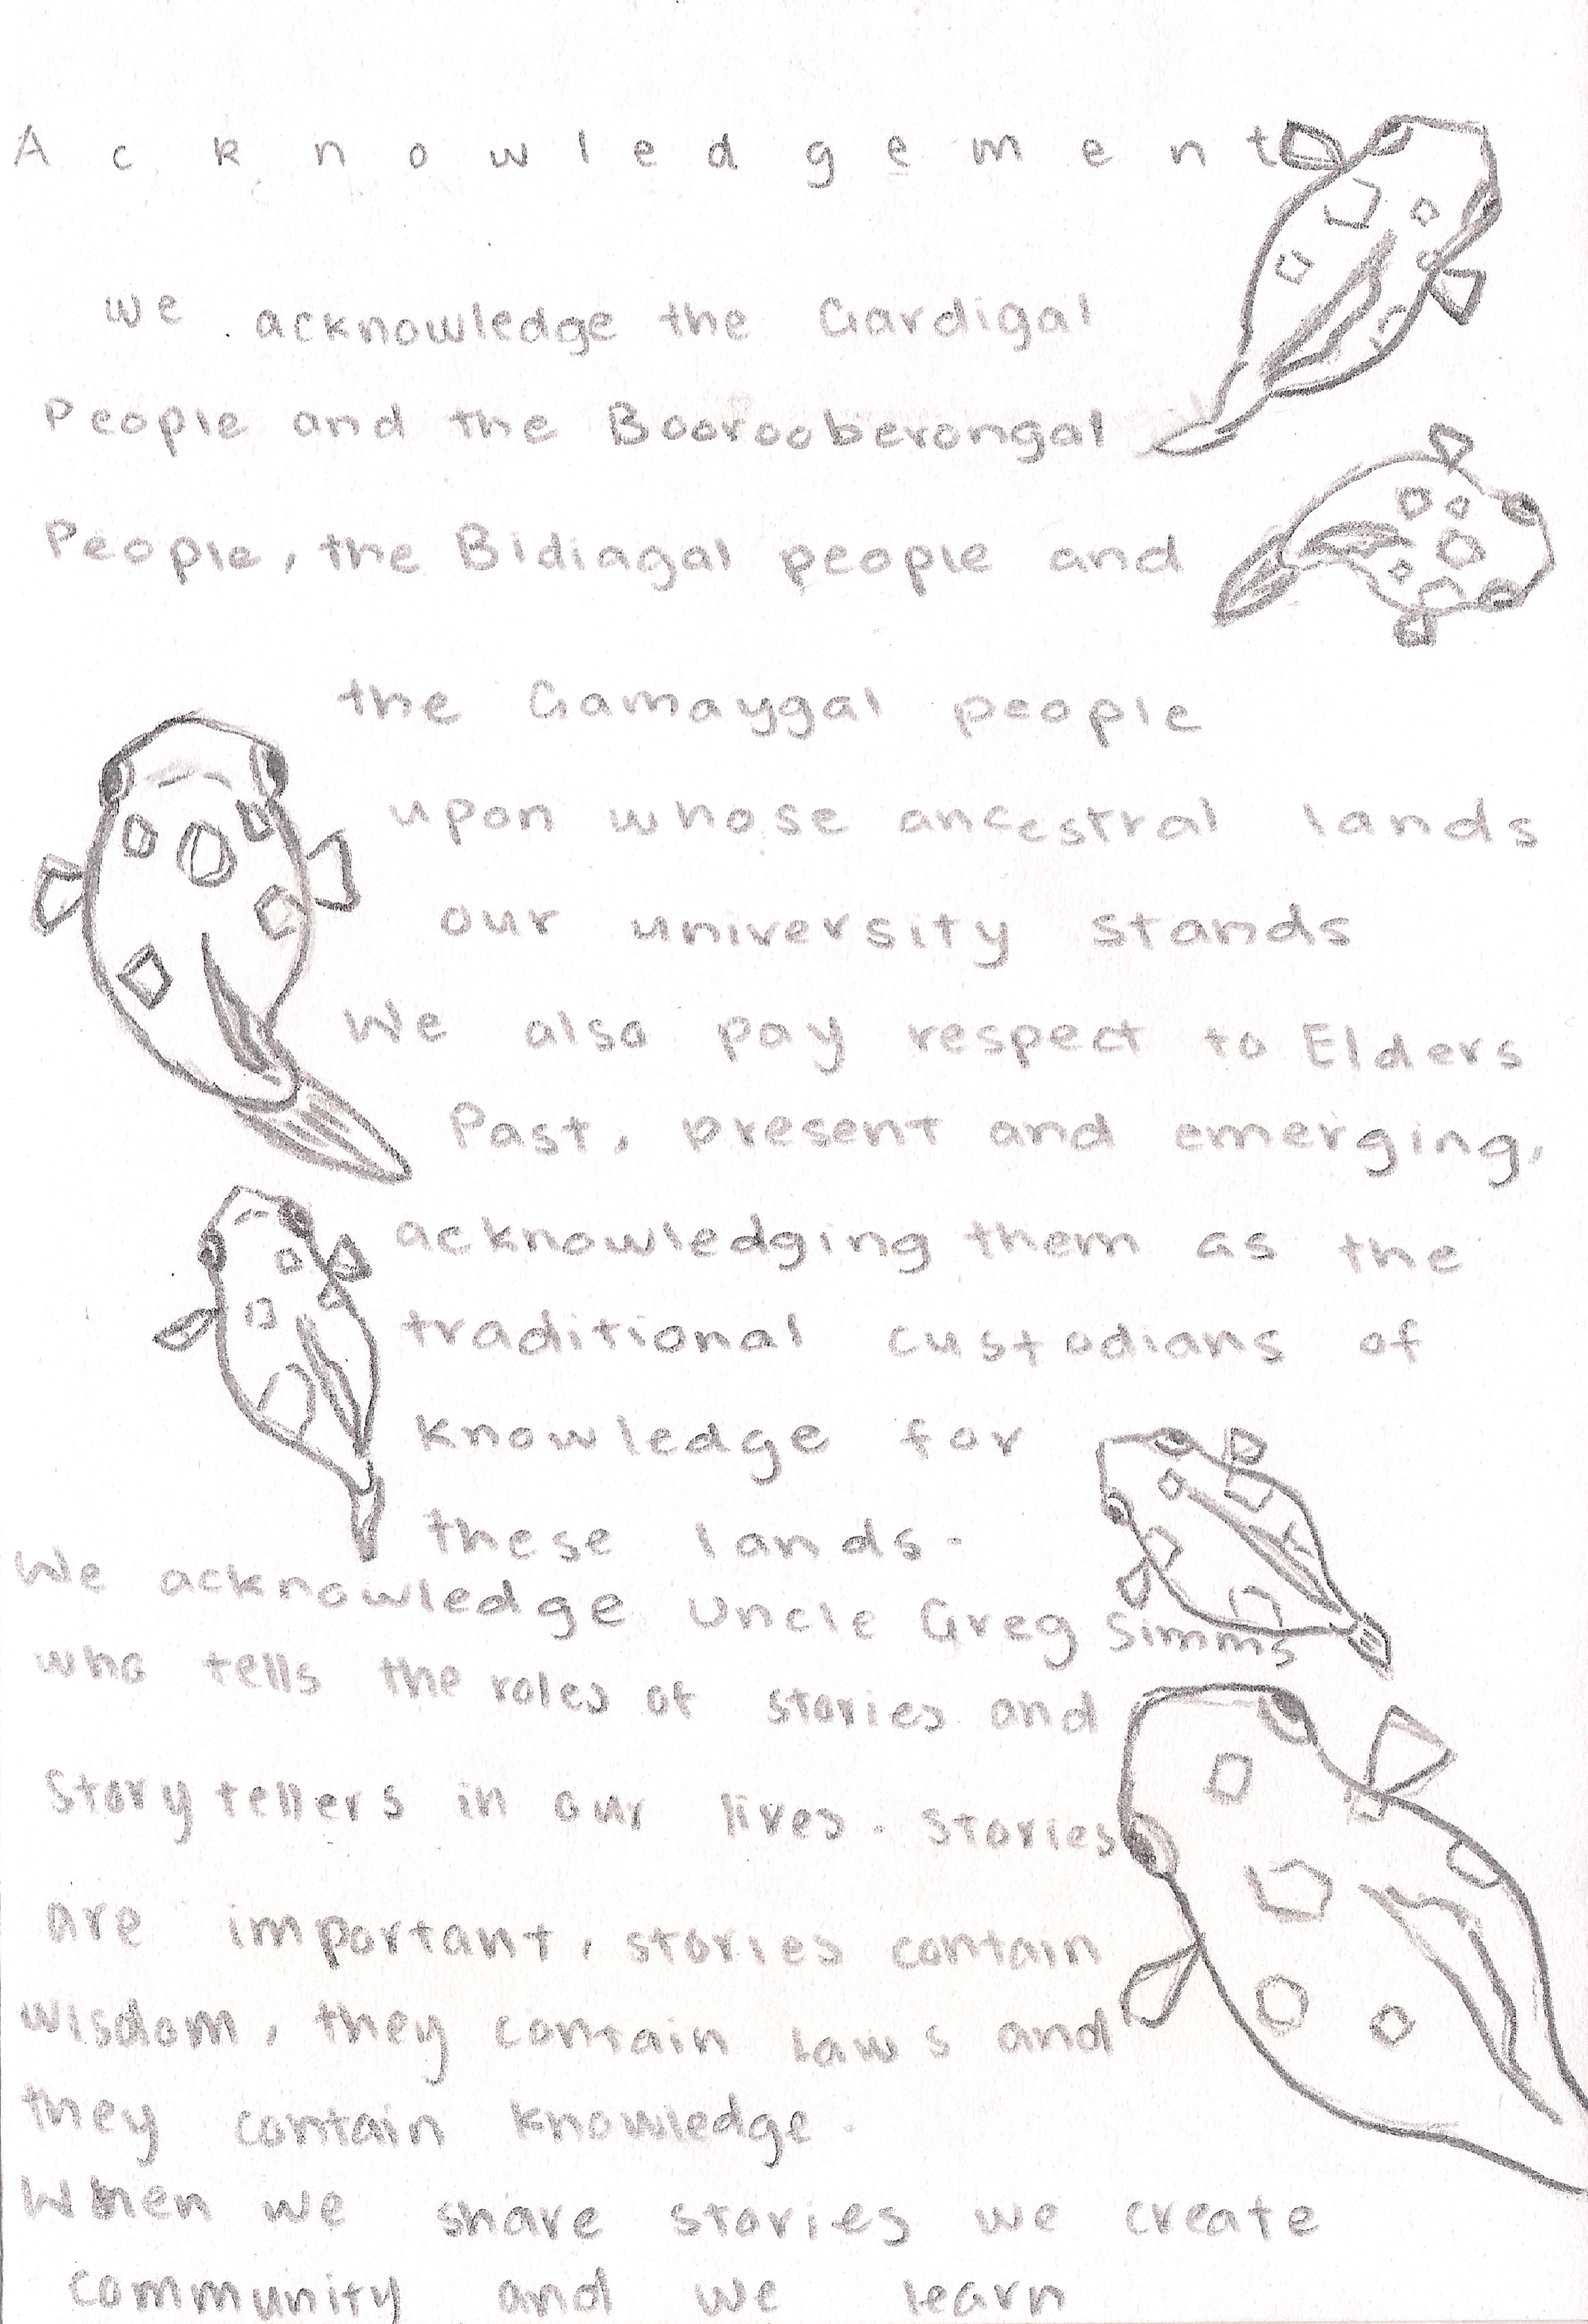 Acknowledgement
we acknowledge the Gardigal
People and the Boorooberongal
People, the Bidiagal people and
the Gamaygal people
upon whose ancestral lands
our university stands
We also pay respect to Elders
Past, present and emerging,
acknowledging them as the
traditional custodians of
knowledge for
these lands.
We acknowledge Uncle Greg Simms
who tells the roles of stories and
Story tellers in our lives. stories
are important, stories contain
wisdom, they contain laws and
they contain knowledge.
When we share stories we create
community and we learn